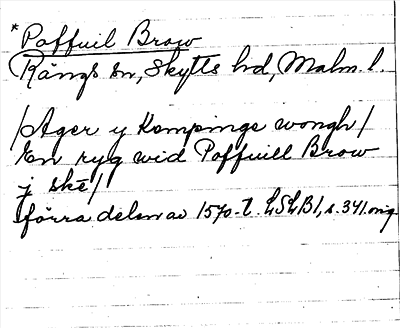 *Poffuil Brow
Rängs sn, Skytts hd, Malm. l.
/Ager y Kempinge wongh/
En ryg wid Poffuill Brow
j skē/
förra delen av 1570-t. LSLB1, s. 341. orig.